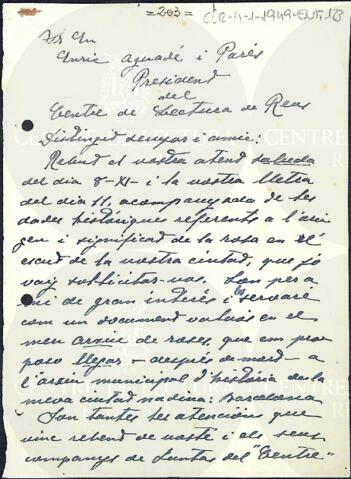 = 203 =
CLR-4-1-1949-ENT. 123
Sr. En
Enric Aguadé i Parés
President
del
Centre de Lectura de Reus
Distingid senyor i amic:
Rebut el vostre atent saluda
del dia 8-XI- i la vostra lletra
del dia 11, acompanyada de les
dades històriques referents a l'ori-
gen i significat de la rosa en el
escut de la vostra ciutat, que jo
vaig sol·licitar-vos. Son per a
mi de gran interès i servaré
com un document valuós en el
meu arxiu de roses, que em pro-
poso llegar - després de mort - a
l'arxiu municipal d'història de la
meva ciutat nadiua: Barcelona
Son tantes les atencions que
vinc rebent de vostè i els seus
companys de Junta del "Centre"